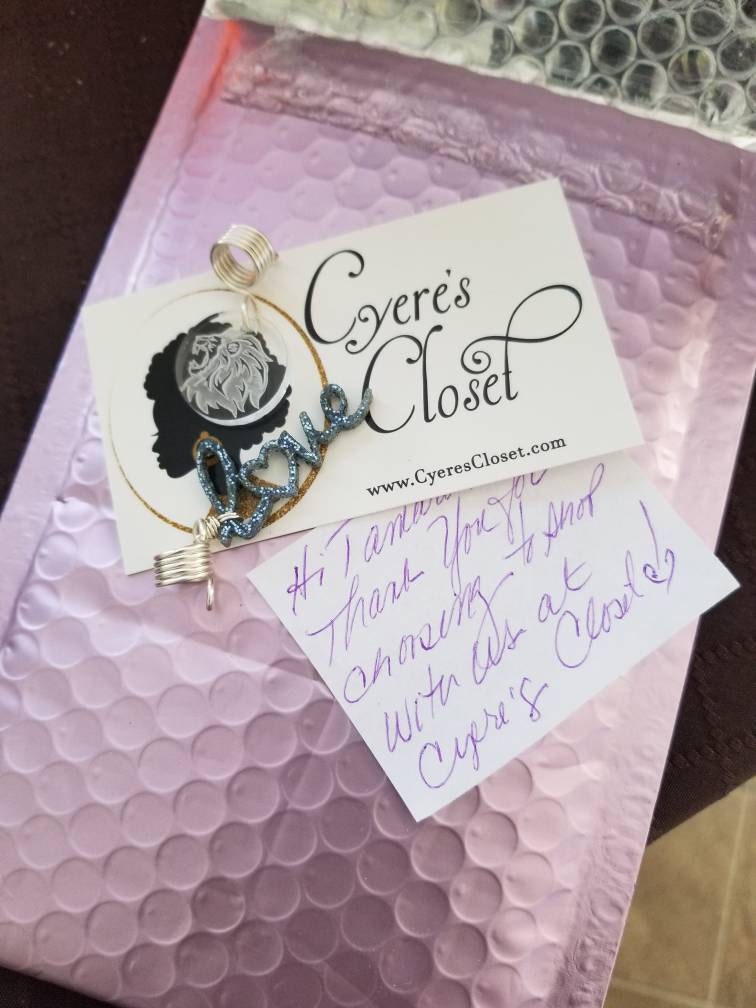 Cyere's
Closet
www.CyeresCloset.com
love
Hi
Thank You for
choosing to shop
with us at
Cyere's Closet!